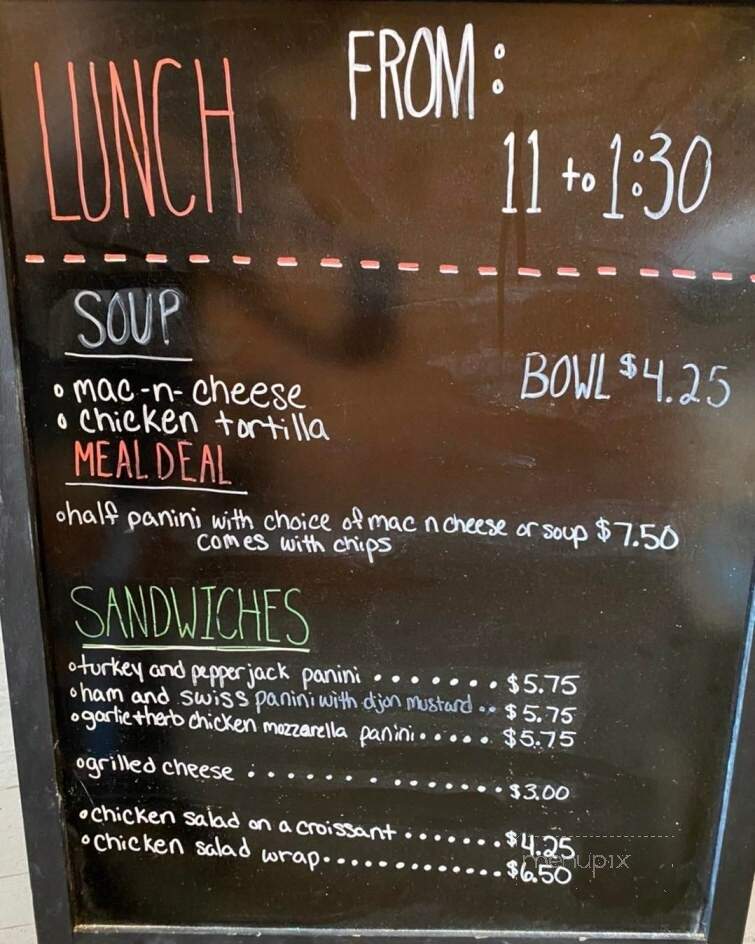 LUNCH
FROM:
11 to 1:30
SOUP
BOWL $4.25
mac-n-cheese
chicken tortilla
MEAL DEAL
half panini with choice of mac n cheese or soup $7.50
comes with chips
SANDWICHES
turkey and pepperjack panini . . . . . . . $5.75
ham and swiss panini with dijon mustard .. $5.75
garlic+herb chicken mozzarella panini . . . . . $5.75
grilled cheese . . . . . . . . . . . . . $3.00
chicken salad on a croissant . . . . . . . $4.25
chicken salad wrap . . . . . . . . . . . . . $6.50
menupix